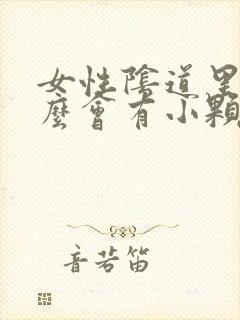 女性陰道里
麼會有小顆
音若笛